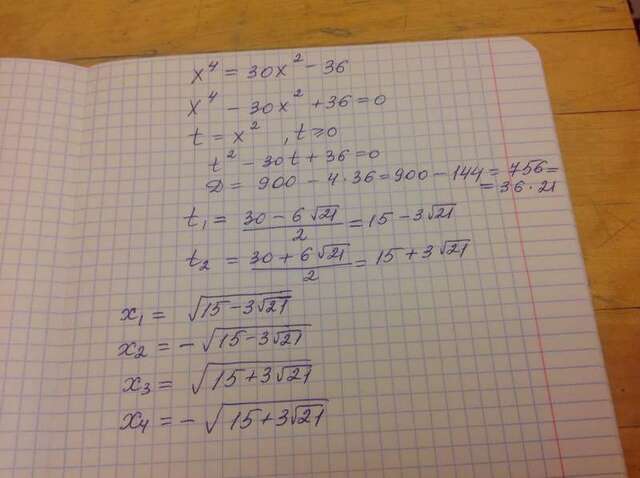 x⁴ = 30x² - 36
x⁴ - 30x² + 36 = 0
t = x² , t ⩾ 0
t² - 30t + 36 = 0
D = 900 - 4·36 = 900 - 144 = 756 =
= 36·21
t₁ = (30 - 6√21)/2 = 15 - 3√21
t₂ = (30 + 6√21)/2 = 15 + 3√21
x₁ = √(15 - 3√21)
x₂ = -√(15 - 3√21)
x₃ = √(15 + 3√21)
x₄ = -√(15 + 3√21)